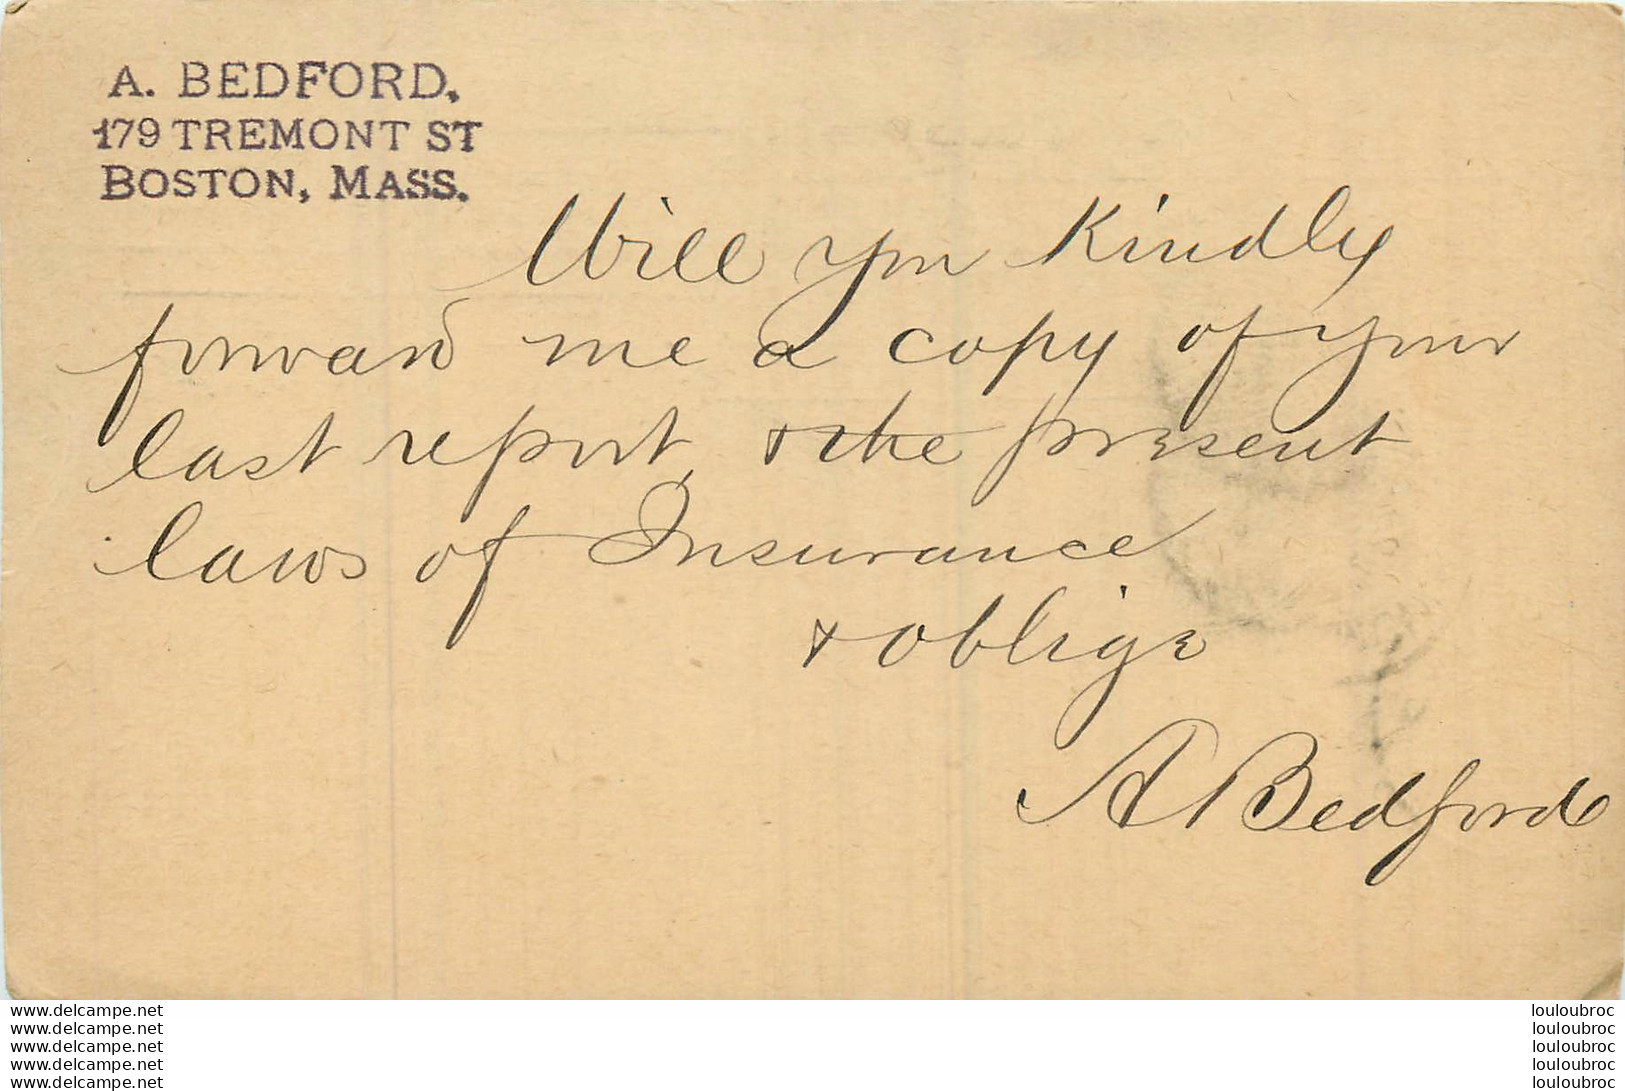 A. BEDFORD,
179 TREMONT ST
BOSTON, MASS.
Will you Kindly
forward me a copy of your
last report, & the present
laws of Insurance
& oblige
A Bedford
www.delcampe.net
www.delcampe.net
www.delcampe.net
www.delcampe.net
www.delcampe.net
louloubroc
louloubroc
louloubroc
louloubroc
louloubroc